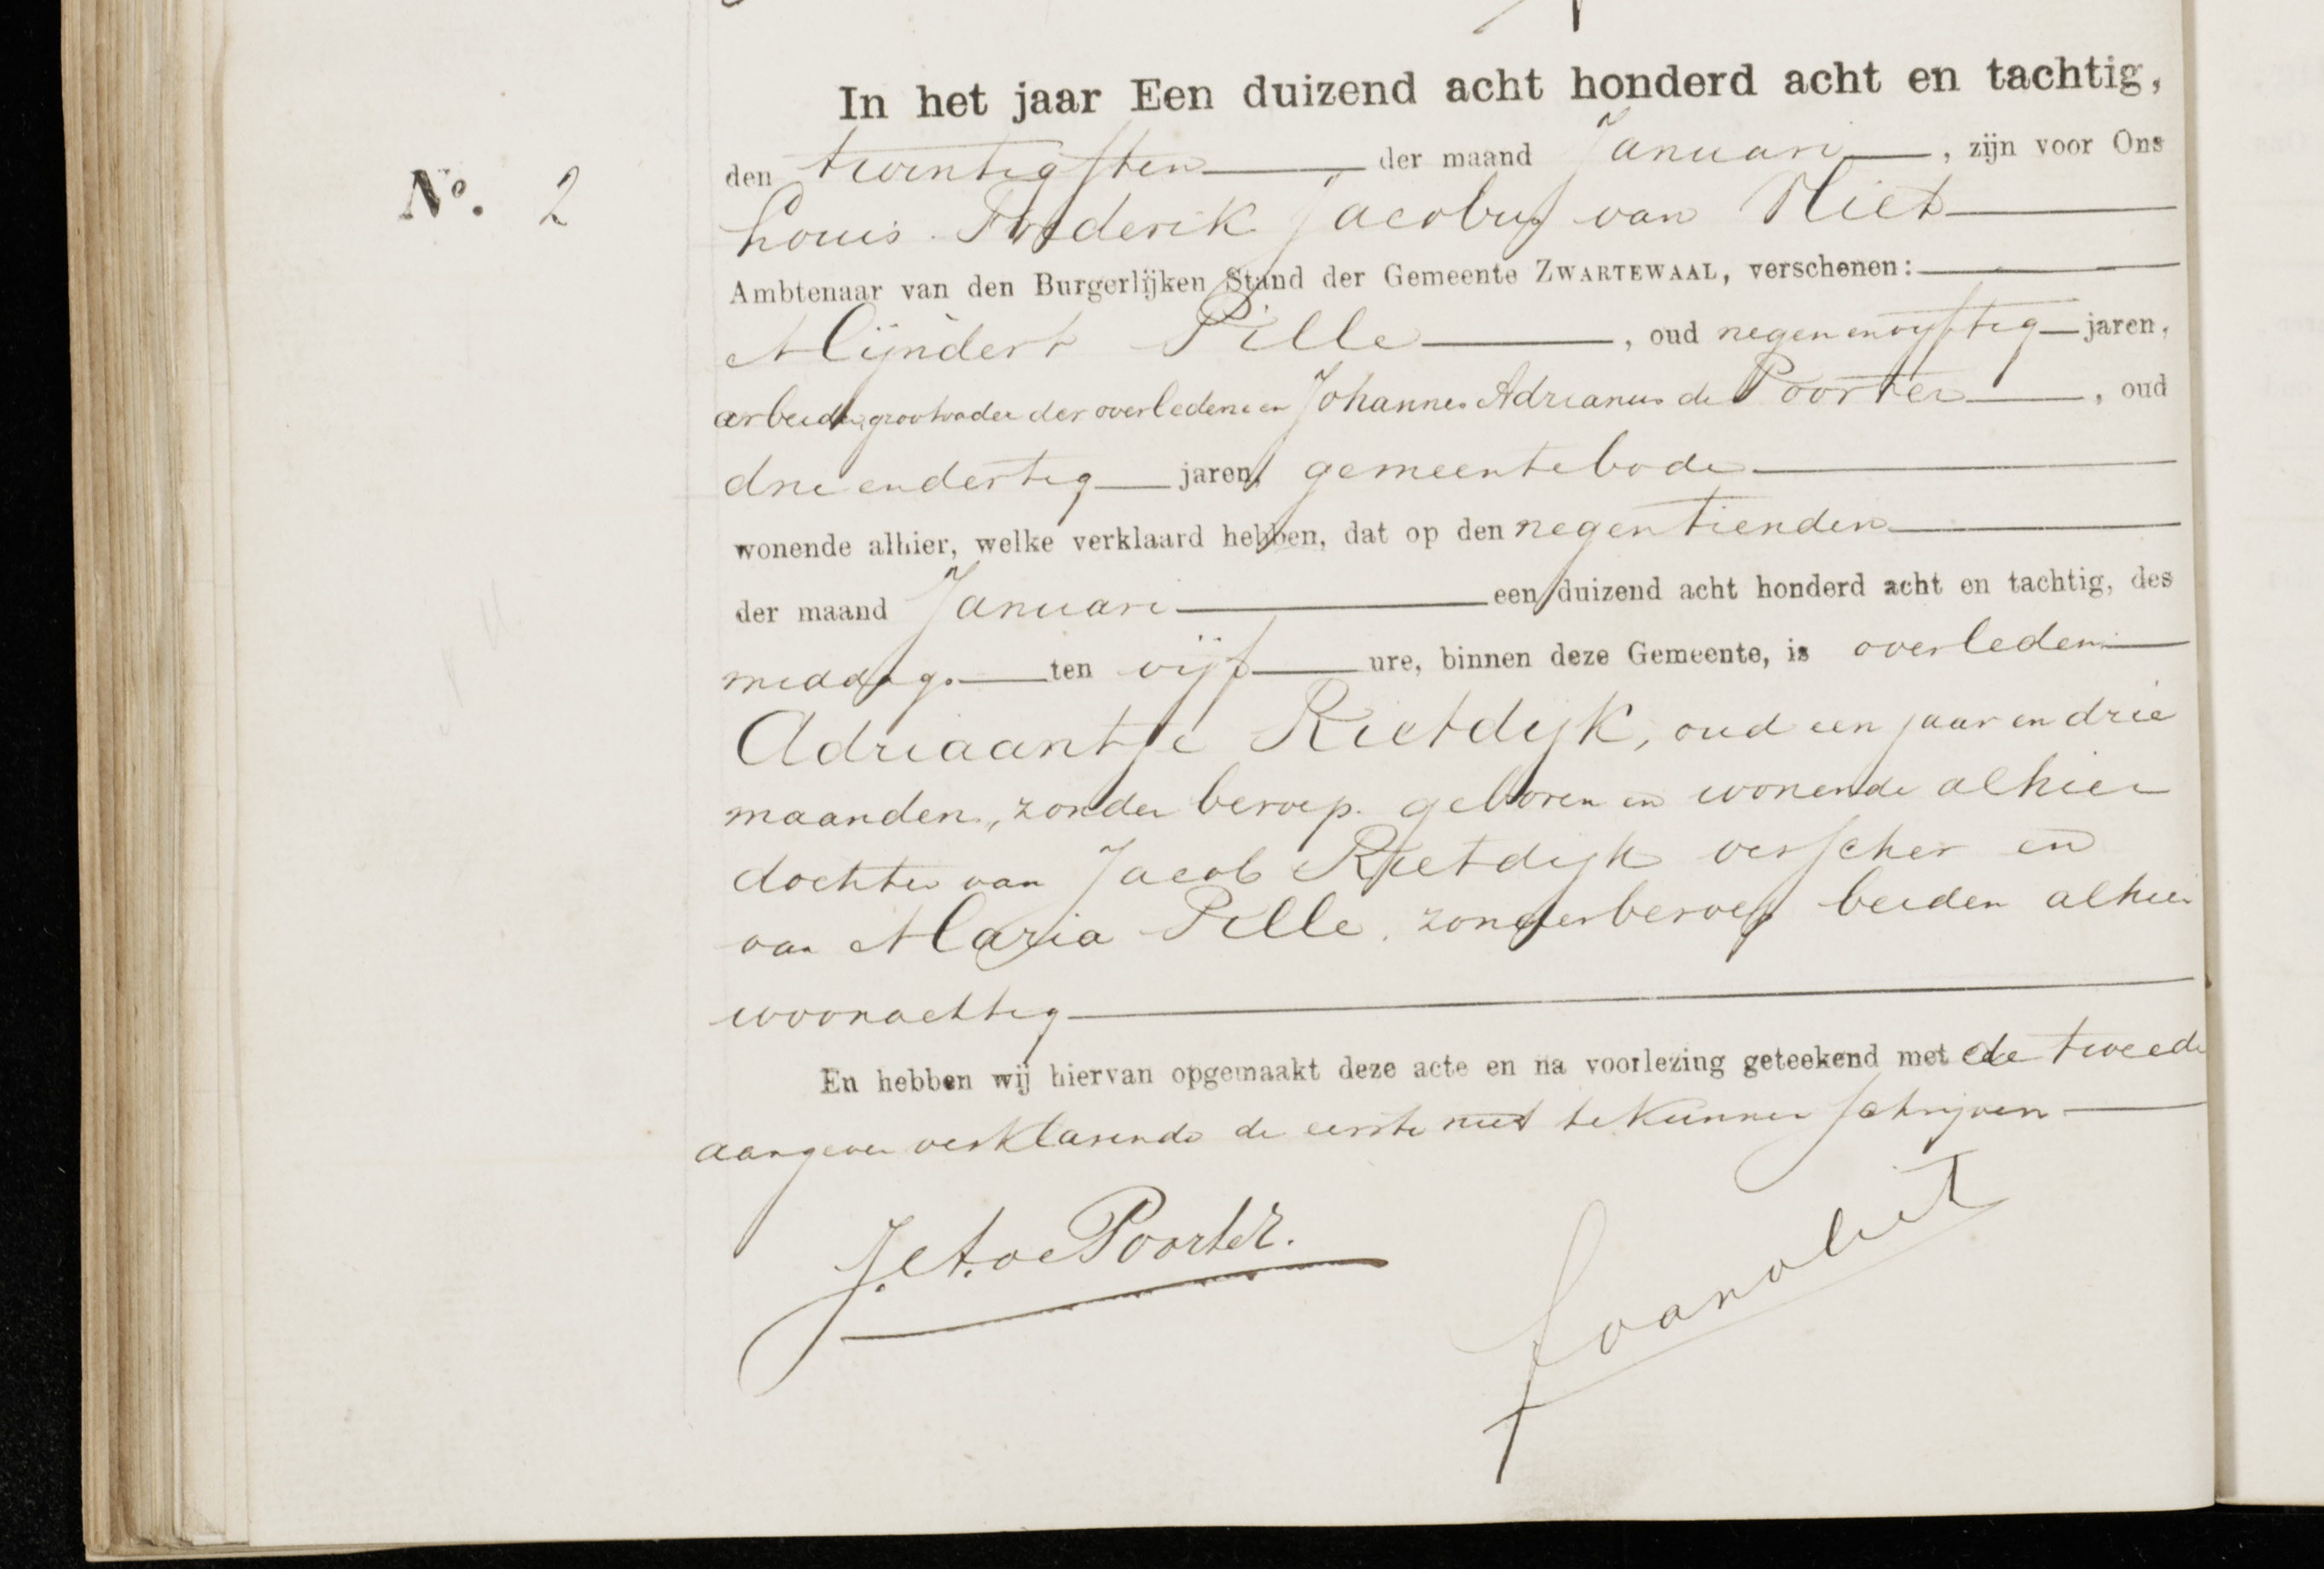 In het jaar Een duizend acht honderd acht en tachtig,
No. 2
den twintigsten der maand Januari, zijn voor Ons
Louis Frederik Jacobus van Vliet
Ambtenaar van den Burgerlijken Stand der Gemeente ZWARTEWAAL, verschenen:
Mijndert Pille, oud negenenvijftig jaren,
arbeider, grootvader der overledene en Johannes Adrianus de Poorter, oud
drieendertig jaren, gemeentebode
wonende alhier, welke verklaard hebben, dat op den negentienden
der maand Januari een duizend acht honderd acht en tachtig, des
middags ten vijf ure, binnen deze Gemeente, is overleden
Adriaantje Rietdijk, oud een jaar en drie
maanden, zonder beroep. geboren en wonende alhier
dochter van Jacob Rietdijk visscher en
van Maria Pille, zonder beroep beiden alhier
woonachtig
En hebben wij hiervan opgemaakt deze acte en na voorlezing geteekend met de tweede
aangever verklarende de eerste niet te kunnen schrijven
J.A. de Poorter.
LvanVliet